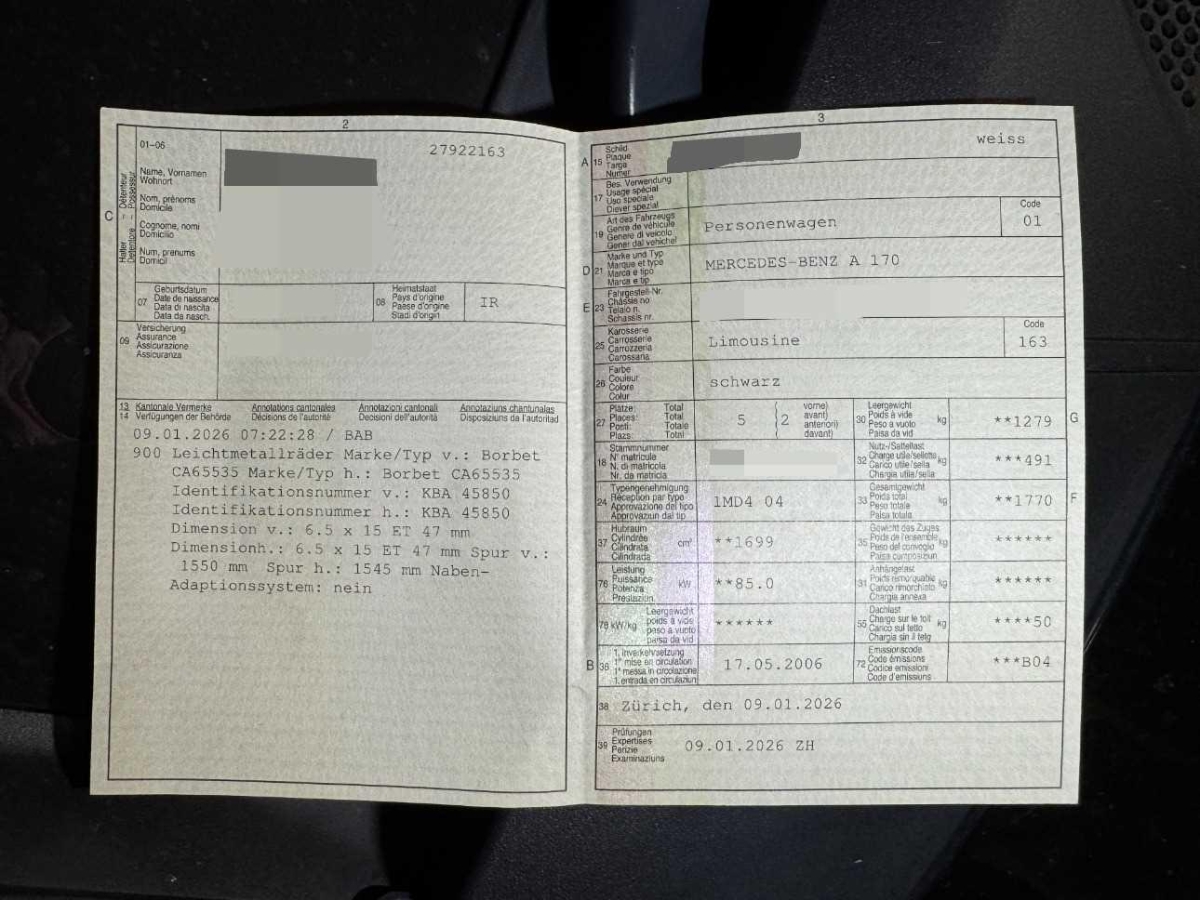 2
01-06
27922163
C
Halter – Détenteur
Detentore – Possessur
Name, Vornamen
Wohnort
Nom, prénoms
Domicile
Cognome, nomi
Domicilio
Num, prenums
Domicil
07
Geburtsdatum
Date de naissance
Data di nascita
Data da nasch.
08
Heimatstaat
Pays d'origine
Paese d'origine
Stadi d'origin
IR
09
Versicherung
Assurance
Assicurazione
Assicuranza
13 Kantonale Vermerke Annotations cantonales Annotazioni cantonali Annotaziuns chantunalas
14 Verfügungen der Behörde Décisions de l'autorité Decisioni dell'autorità Disposiziuns da l'autoritad
09.01.2026 07:22:28 / BAB
900 Leichtmetallräder Marke/Typ v.: Borbet
CA65535 Marke/Typ h.: Borbet CA65535
Identifikationsnummer v.: KBA 45850
Identifikationsnummer h.: KBA 45850
Dimension v.: 6.5 x 15 ET 47 mm
Dimensionh.: 6.5 x 15 ET 47 mm Spur v.:
1550 mm Spur h.: 1545 mm Naben-
Adaptionssystem: nein
3
A 15
Schild
Plaque
Targa
Numer
weiss
17
Bes. Verwendung
Usage spécial
Uso speciale
Diever spezial
19
Art des Fahrzeugs
Genre de véhicule
Genere di veicolo
Gener dal vehichel
Personenwagen
Code
01
D 21
Marke und Typ
Marque et type
Marca e tipo
Marca e tip
MERCEDES-BENZ A 170
E 23
Fahrgestell-Nr.
Châssis no
Telaio n.
Schassis nr.
25
Karosserie
Carrosserie
Carrozzeria
Carossaria
Limousine
Code
163
26
Farbe
Couleur
Colore
Colur
schwarz
27
Plätze: Total
Places: Total
Posti: Totale
Plazs: Total
5
2
vorne)
avant)
anteriori)
davant)
30
Leergewicht
Poids à vide
Peso a vuoto
Paisa da vid
kg
**1279
G
18
Stammnummer
N° matricule
N. di matricola
Nr. da matricla
32
Nutz-/Sattellast
Charge utile/sellette
Carico utile/sella
Chargia utila/sella
kg
***491
24
Typengenehmigung
Réception par type
Approvazione del tipo
Approvaziun dal tip
1MD4 04
33
Gesamtgewicht
Poids total
Peso totale
Paisa totala
kg
**1770
F
37
Hubraum
Cylindrée
Cilindrata
Cilindrada
cm³
**1699
35
Gewicht des Zuges
Poids de l'ensemble
Peso del convoglio
Paisa cumposiziun
kg
******
76
Leistung
Puissance
Potenza
Prestaziun
kW
**85.0
31
Anhängelast
Poids remorquable
Carico rimorchiato
Chargia annexa
kg
******
78 kW/kg
Leergewicht
poids à vide
peso a vuoto
paisa da vid
******
55
Dachlast
Charge sur le toit
Carico sul tetto
Chargia sin il tetg
kg
****50
B 36
1. Inverkehrsetzung
1re mise en circulation
1a messa in circolazione
1. entrada en circulaziun
17.05.2006
72
Emissionscode
Code émissions
Codice emissioni
Code d'emissiuns
***B04
38
Zürich, den 09.01.2026
39
Prüfungen
Expertises
Perizie
Examinaziuns
09.01.2026 ZH